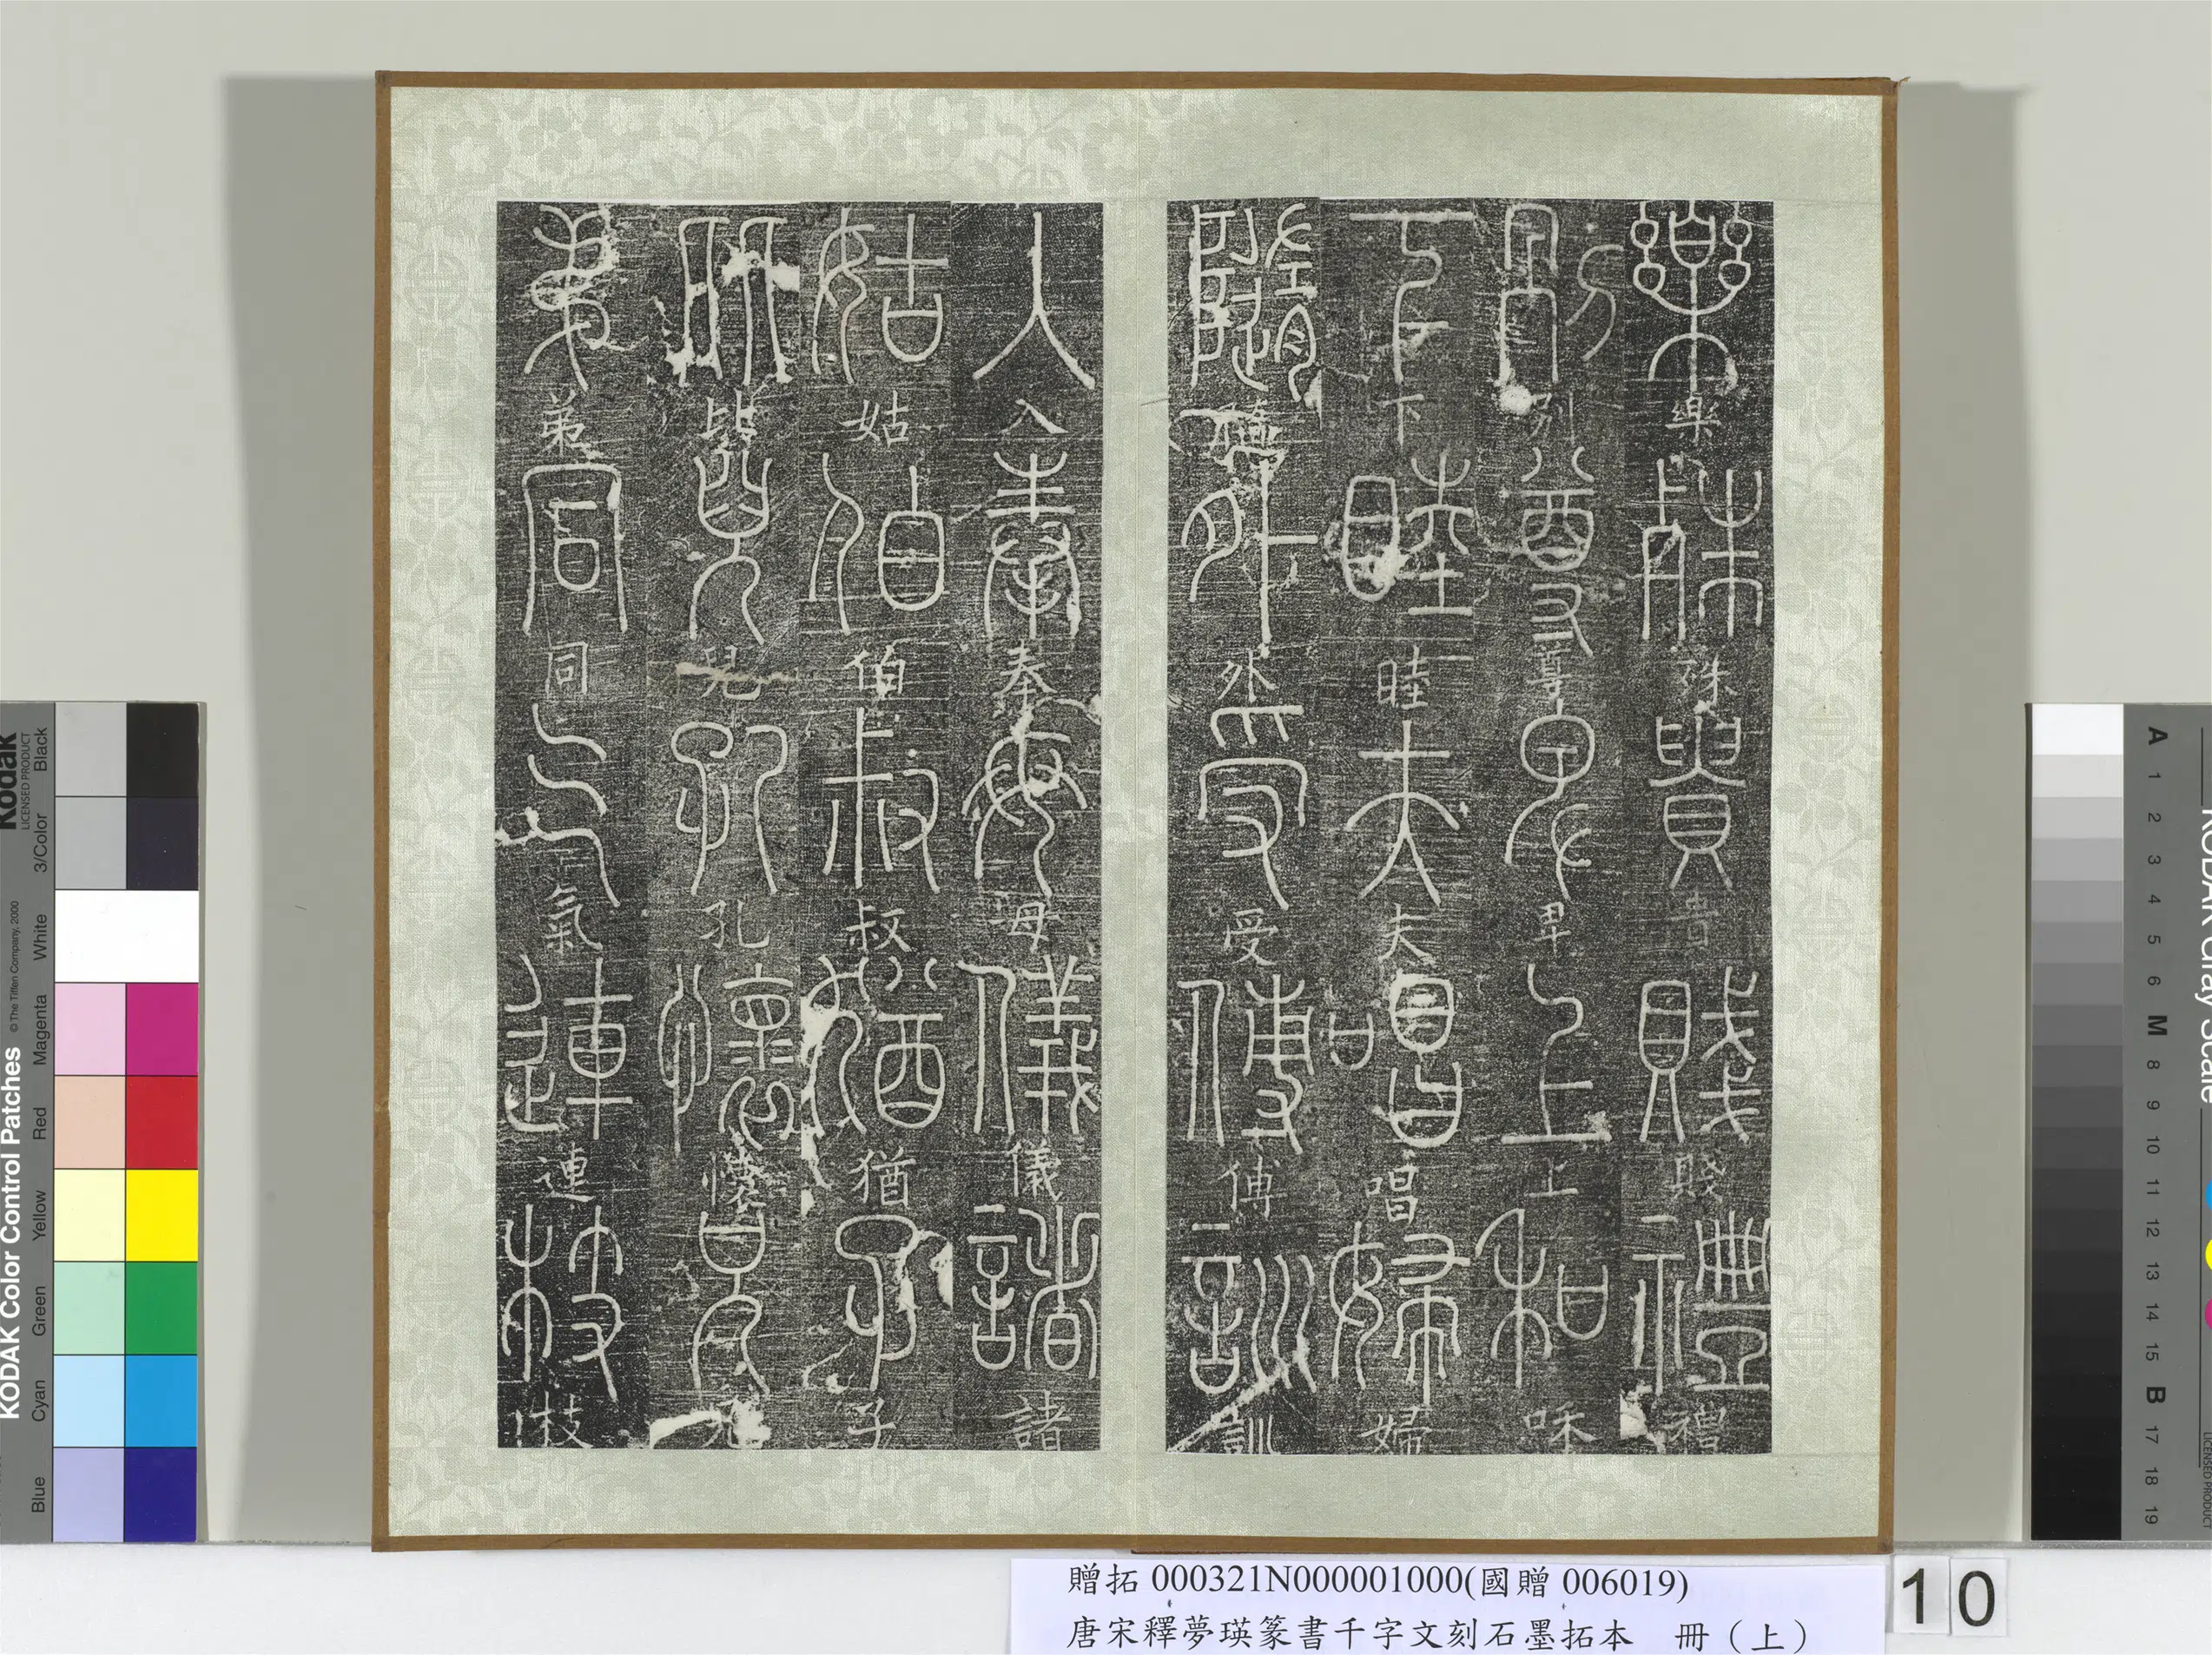 樂樂殊殊貴貴賤賤禮禮
別別尊尊卑卑上上和咊
下下睦睦夫夫唱唱婦婦
隨隨外外受受傅傅訓訓
入入奉奉母母儀儀諸諸
姑姑伯伯叔叔猶猶子子
比比兒兒孔孔懷懷兄兄
弟弟同同气氣連連枝枝
贈拓 000321N000001000(國贈 006019)
唐宋釋夢瑛篆書千字文刻石墨拓本 冊（上）
10
Kodak
LICENSED PRODUCT
KODAK Color Control Patches
© The Tiffen Company, 2000
Blue Cyan Green Yellow Red Magenta White 3/Color Black
KODAK Gray Scale
A 1 2 3 4 5 6 M 8 9 10 11 12 13 14 15 B 17 18 19
LICENSED PRODUCT